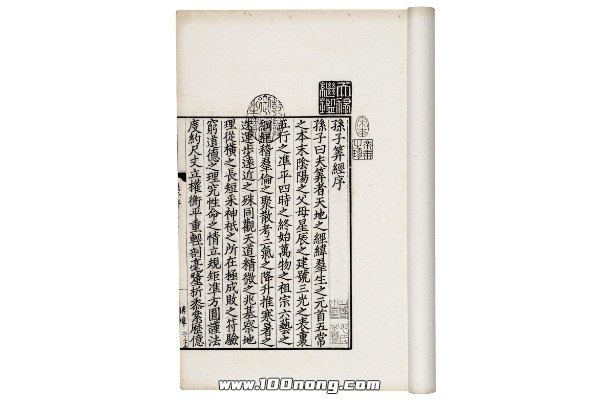 孫子筭經序
孫子曰夫筭者天地之經緯羣生之元首五常
之本末陰陽之父母星辰之建號三光之表裏
五行之準平四時之終始萬物之祖宗六藝之
綱紀稽羣倫之聚散考二氣之降升推寒暑之
迭運步遠近之殊同觀天道精微之兆基察地
理從横之長短采神祇之所在極成敗之符驗
窮道德之理究性命之情立規矩準方圓謹法
度約尺丈立權衡平重輕剖毫氂析黍絫歷億
天禄
繼鑑
www.100nong.com